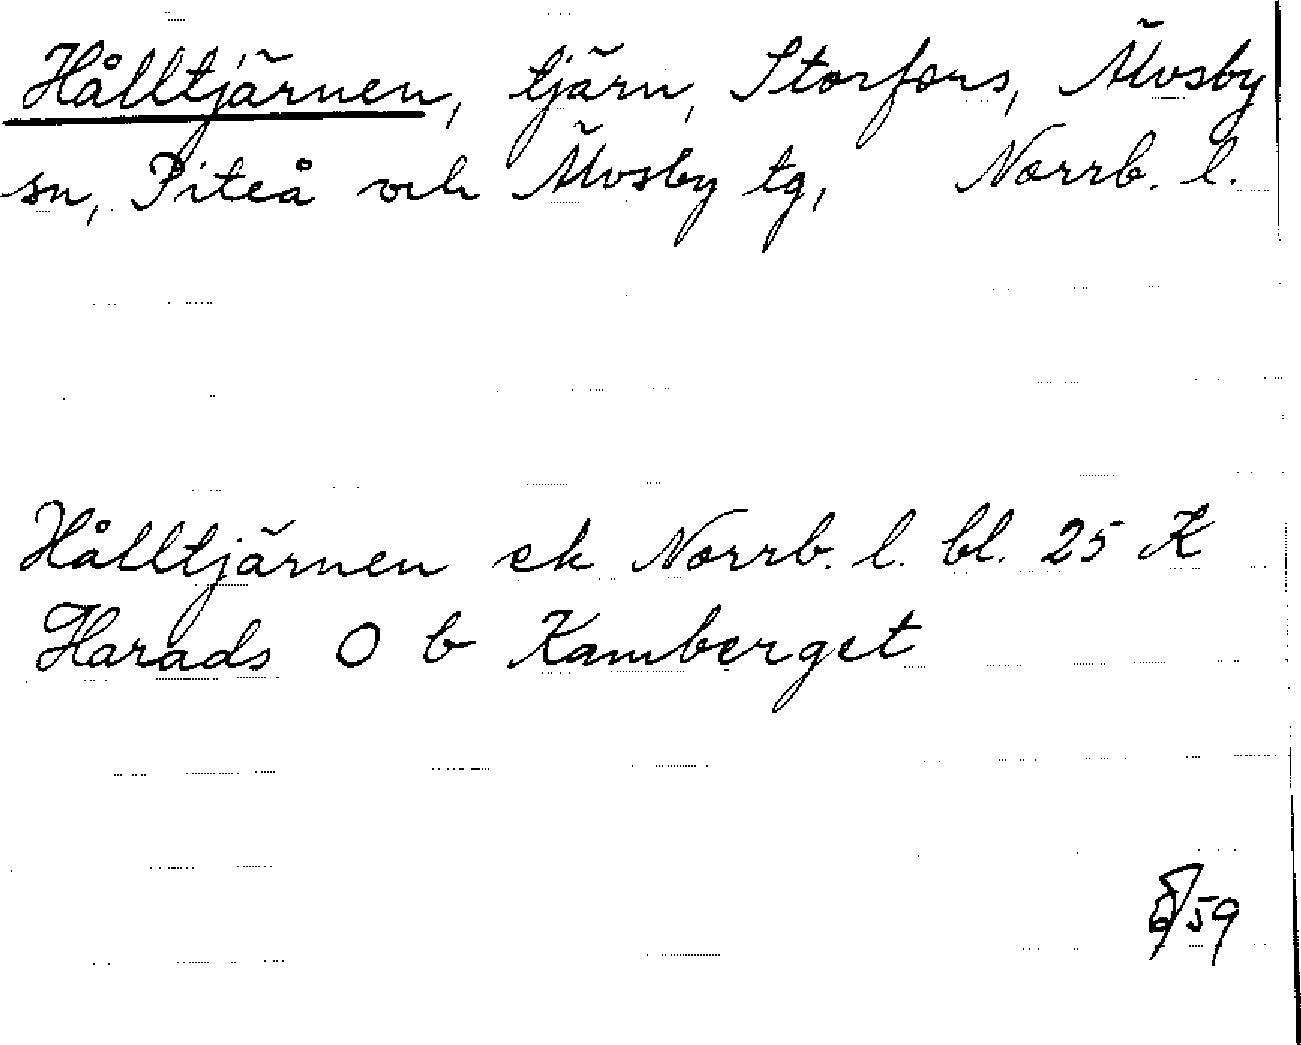 Hålltjärnen, tjärn, Storfors, Älvsby
sn, Piteå och Älvsby tg, Norrb. l.
Hålltjärnen ek Norrb. l. bl. 25 K
Harads O b Kamberget
/59